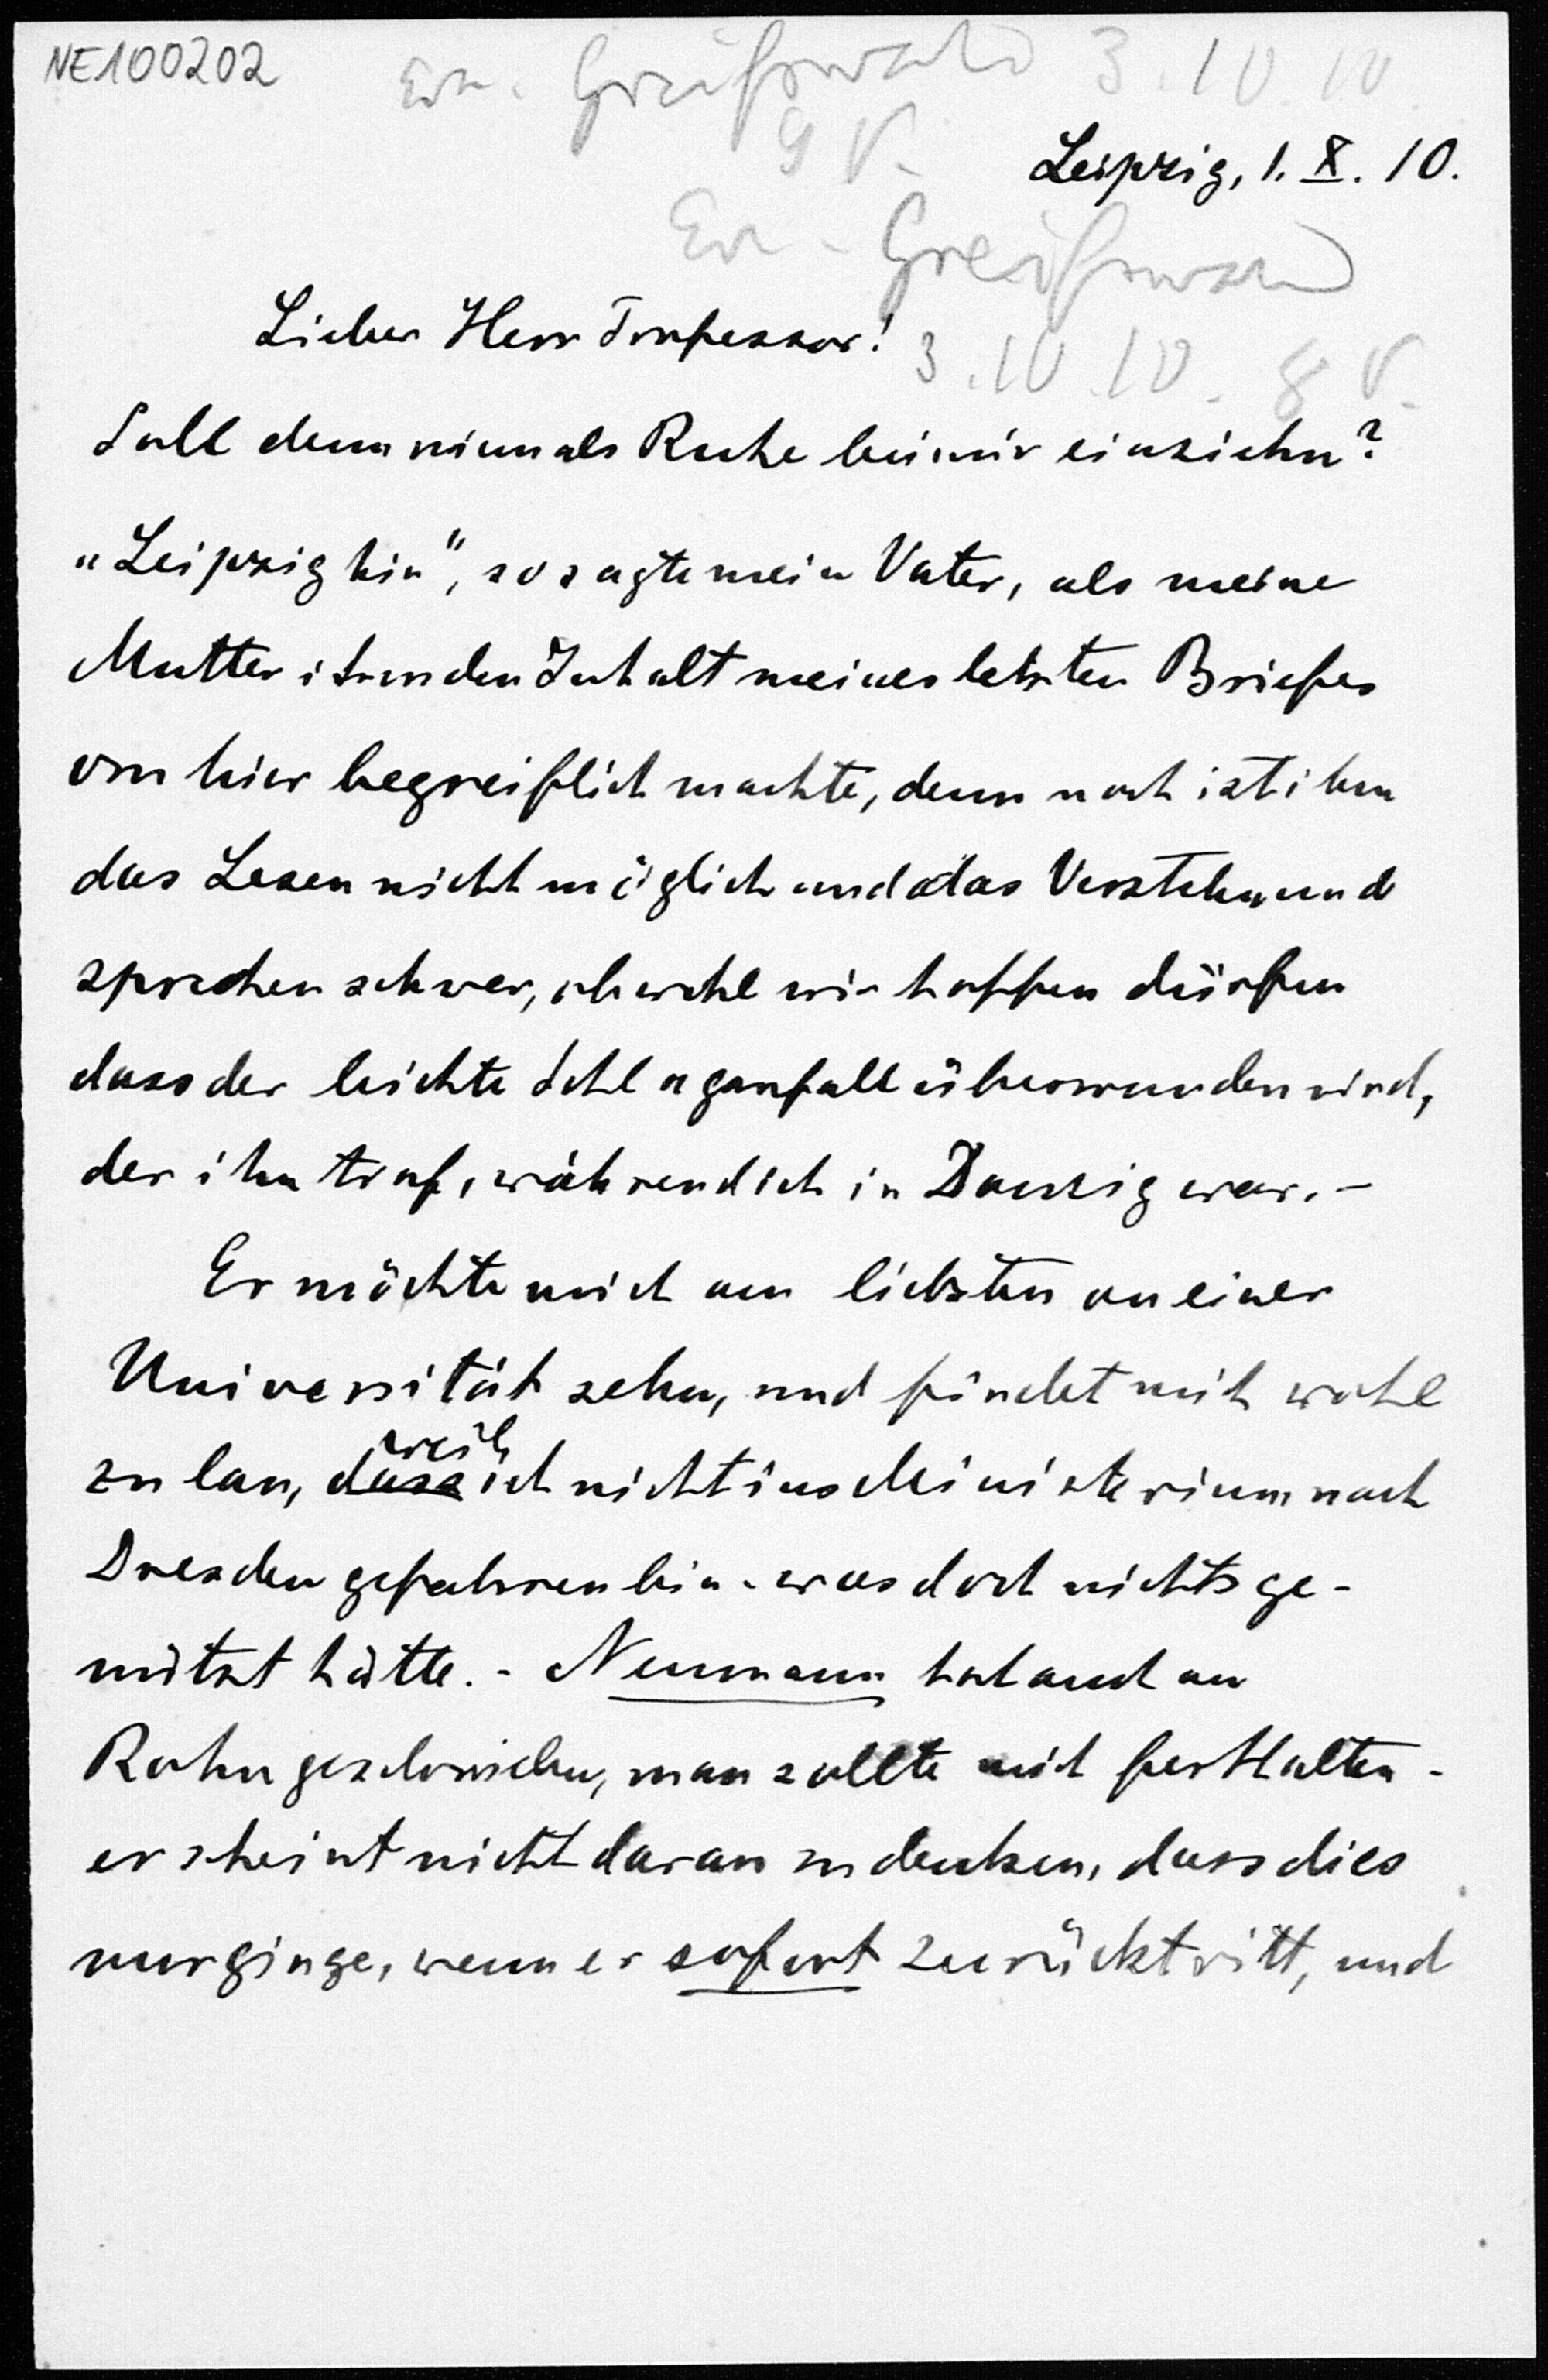 NE100202
Erh. Greifswald 3.10.10.
9 V.
Leipzig, 1. X. 10.
Erh. Greifswald
Lieber Herr Professor!
3.10.10. 8 V.
Soll denn niemals Ruhe bei mir einziehn?
„Leipzig hin", so sagte mein Vater, als meine
Mutter ihm den Inhalt meines letzten Briefes
von hier begreiflich machte, denn noch ist ihm
das Lesen nicht möglich und das Verstehn und
sprechen schwer, obwohl wir hoffen dürfen
dass der leichte Schlaganfall überwunden wird,
der ihn traf, während ich in Danzig war. –
Er möchte mich am liebsten an einer
Universität sehn, und findet mich wohl
weil
zu lau, dass ich nicht ins Ministerium nach
Dresden gefahren bin - was doch nichts ge-
nützt hätte. - Neumann hat auch an
Rohn geschrieben, man sollte mich festhalten -
er scheint nicht daran zu denken, dass dies
nur ginge, wenn er sofort zurücktritt, und